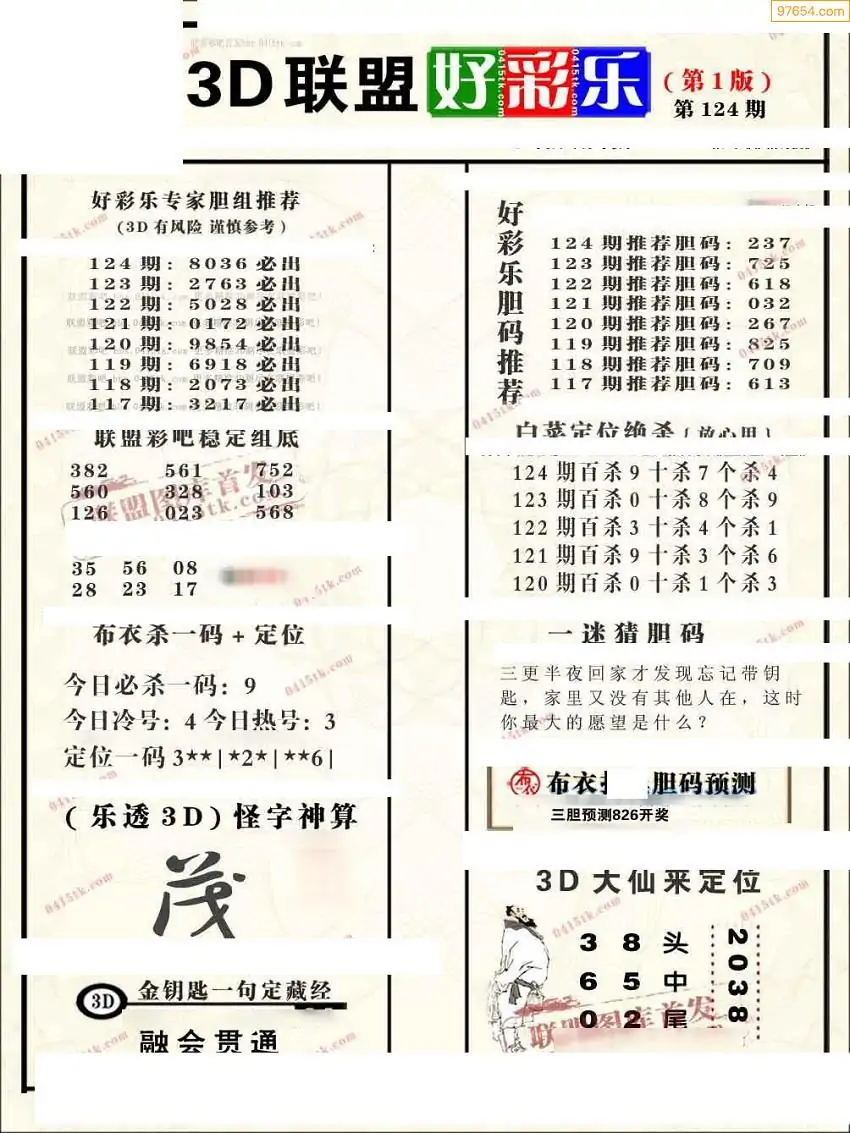 97654.com
3D联盟好彩乐
(第1版)
第124期
好彩乐专家胆组推荐
(3D有风险 谨慎参考)
124期: 8036必出
123期: 2763必出
122期: 5028必出
121期: 0772必出
120期: 9854必出
119期: 6918必出
118期: 2073必出
117期: 3217必出
联盟彩吧稳定组底
382 561 752
560 328 103
126 023 568
35 56 08
28 23 17
布衣杀一码+定位
今日必杀一码: 9
今日冷号: 4 今日热号: 3
定位一码 3**|*2*|**6|
(乐透3D)怪字神算
茂
3D 金钥匙一句定藏经
融会贯通
好彩乐胆码推荐
124期推荐胆码: 237
123期推荐胆码: 725
122期推荐胆码: 618
121期推荐胆码: 032
120期推荐胆码: 267
119期推荐胆码: 825
118期推荐胆码: 709
117期推荐胆码: 613
白菜定位绝杀(放心用)
124期百杀9十杀7个杀4
123期百杀0十杀8个杀9
122期百杀3十杀4个杀1
121期百杀9十杀3个杀6
120期百杀0十杀1个杀3
一迷猜胆码
三更半夜回家才发现忘记带钥
匙，家里又没有其他人在，这时
你最大的愿望是什么？
布衣 胆码预测
三胆预测826开奖
3D大仙来定位
3 8 头
6 5 中
0 2 尾
2038
联盟图库首发
0415tk.com